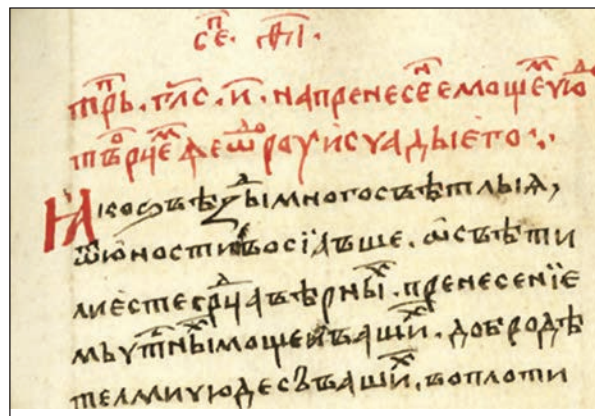 сеⷫ҇. ѳ҃і.
трⷫ҇ь. гл҃с. и҃. на пренесеⷩ҇е мощеⷨ чюⷣ
твⷪ҇рцеⷨ ѳеѡⷣроу и счады его
Ꙗко ѕвѣзⷣы многосвѣтлыꙗ,
ѿ юности восїавше. ѡсвѣти
ли есте срⷣца вѣрныⷯ. пренесенїе
мъ чтⷭныⷯ мощей вашиⷯ. добродѣ
телми чюдесъ вашиⷯ. во плоти